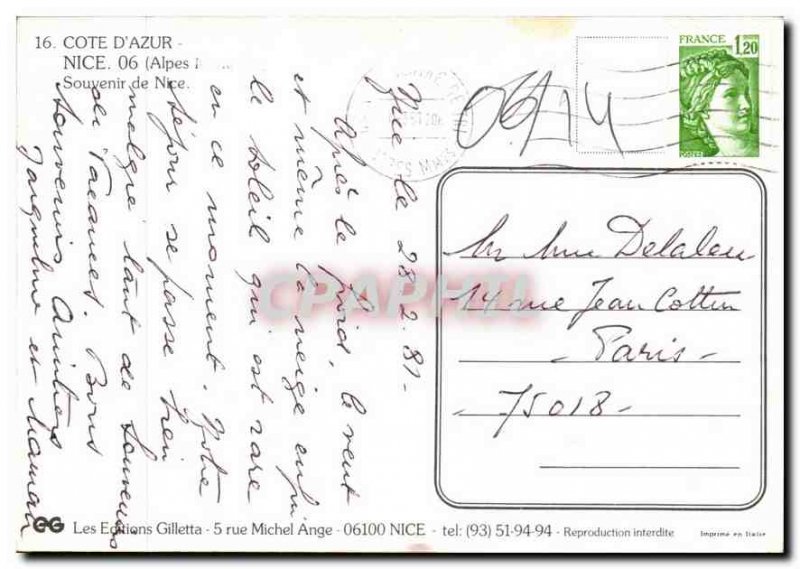 16. COTE D'AZUR -
NICE. 06 (Alpes
Souvenir de Nice.
FRANCE 1,20
POSTES
06/14
Nice le 28.2.81-
Après le froid, le vent
et même la neige enfin
le soleil qui est rare
en ce moment. Notre
séjour se passe bien
malgré tant de souvenirs
de vacances. Bons
souvenirs Amitiés
Jacqueline et Maman
Mr Mme Delaleu
14 rue Jean Cottin
- Paris -
- 75018 -
CPAPHIL
EG Les Editions Gilletta - 5 rue Michel Ange - 06100 NICE - tel: (93) 51-94-94 - Reproduction interdite Imprimé en Italie